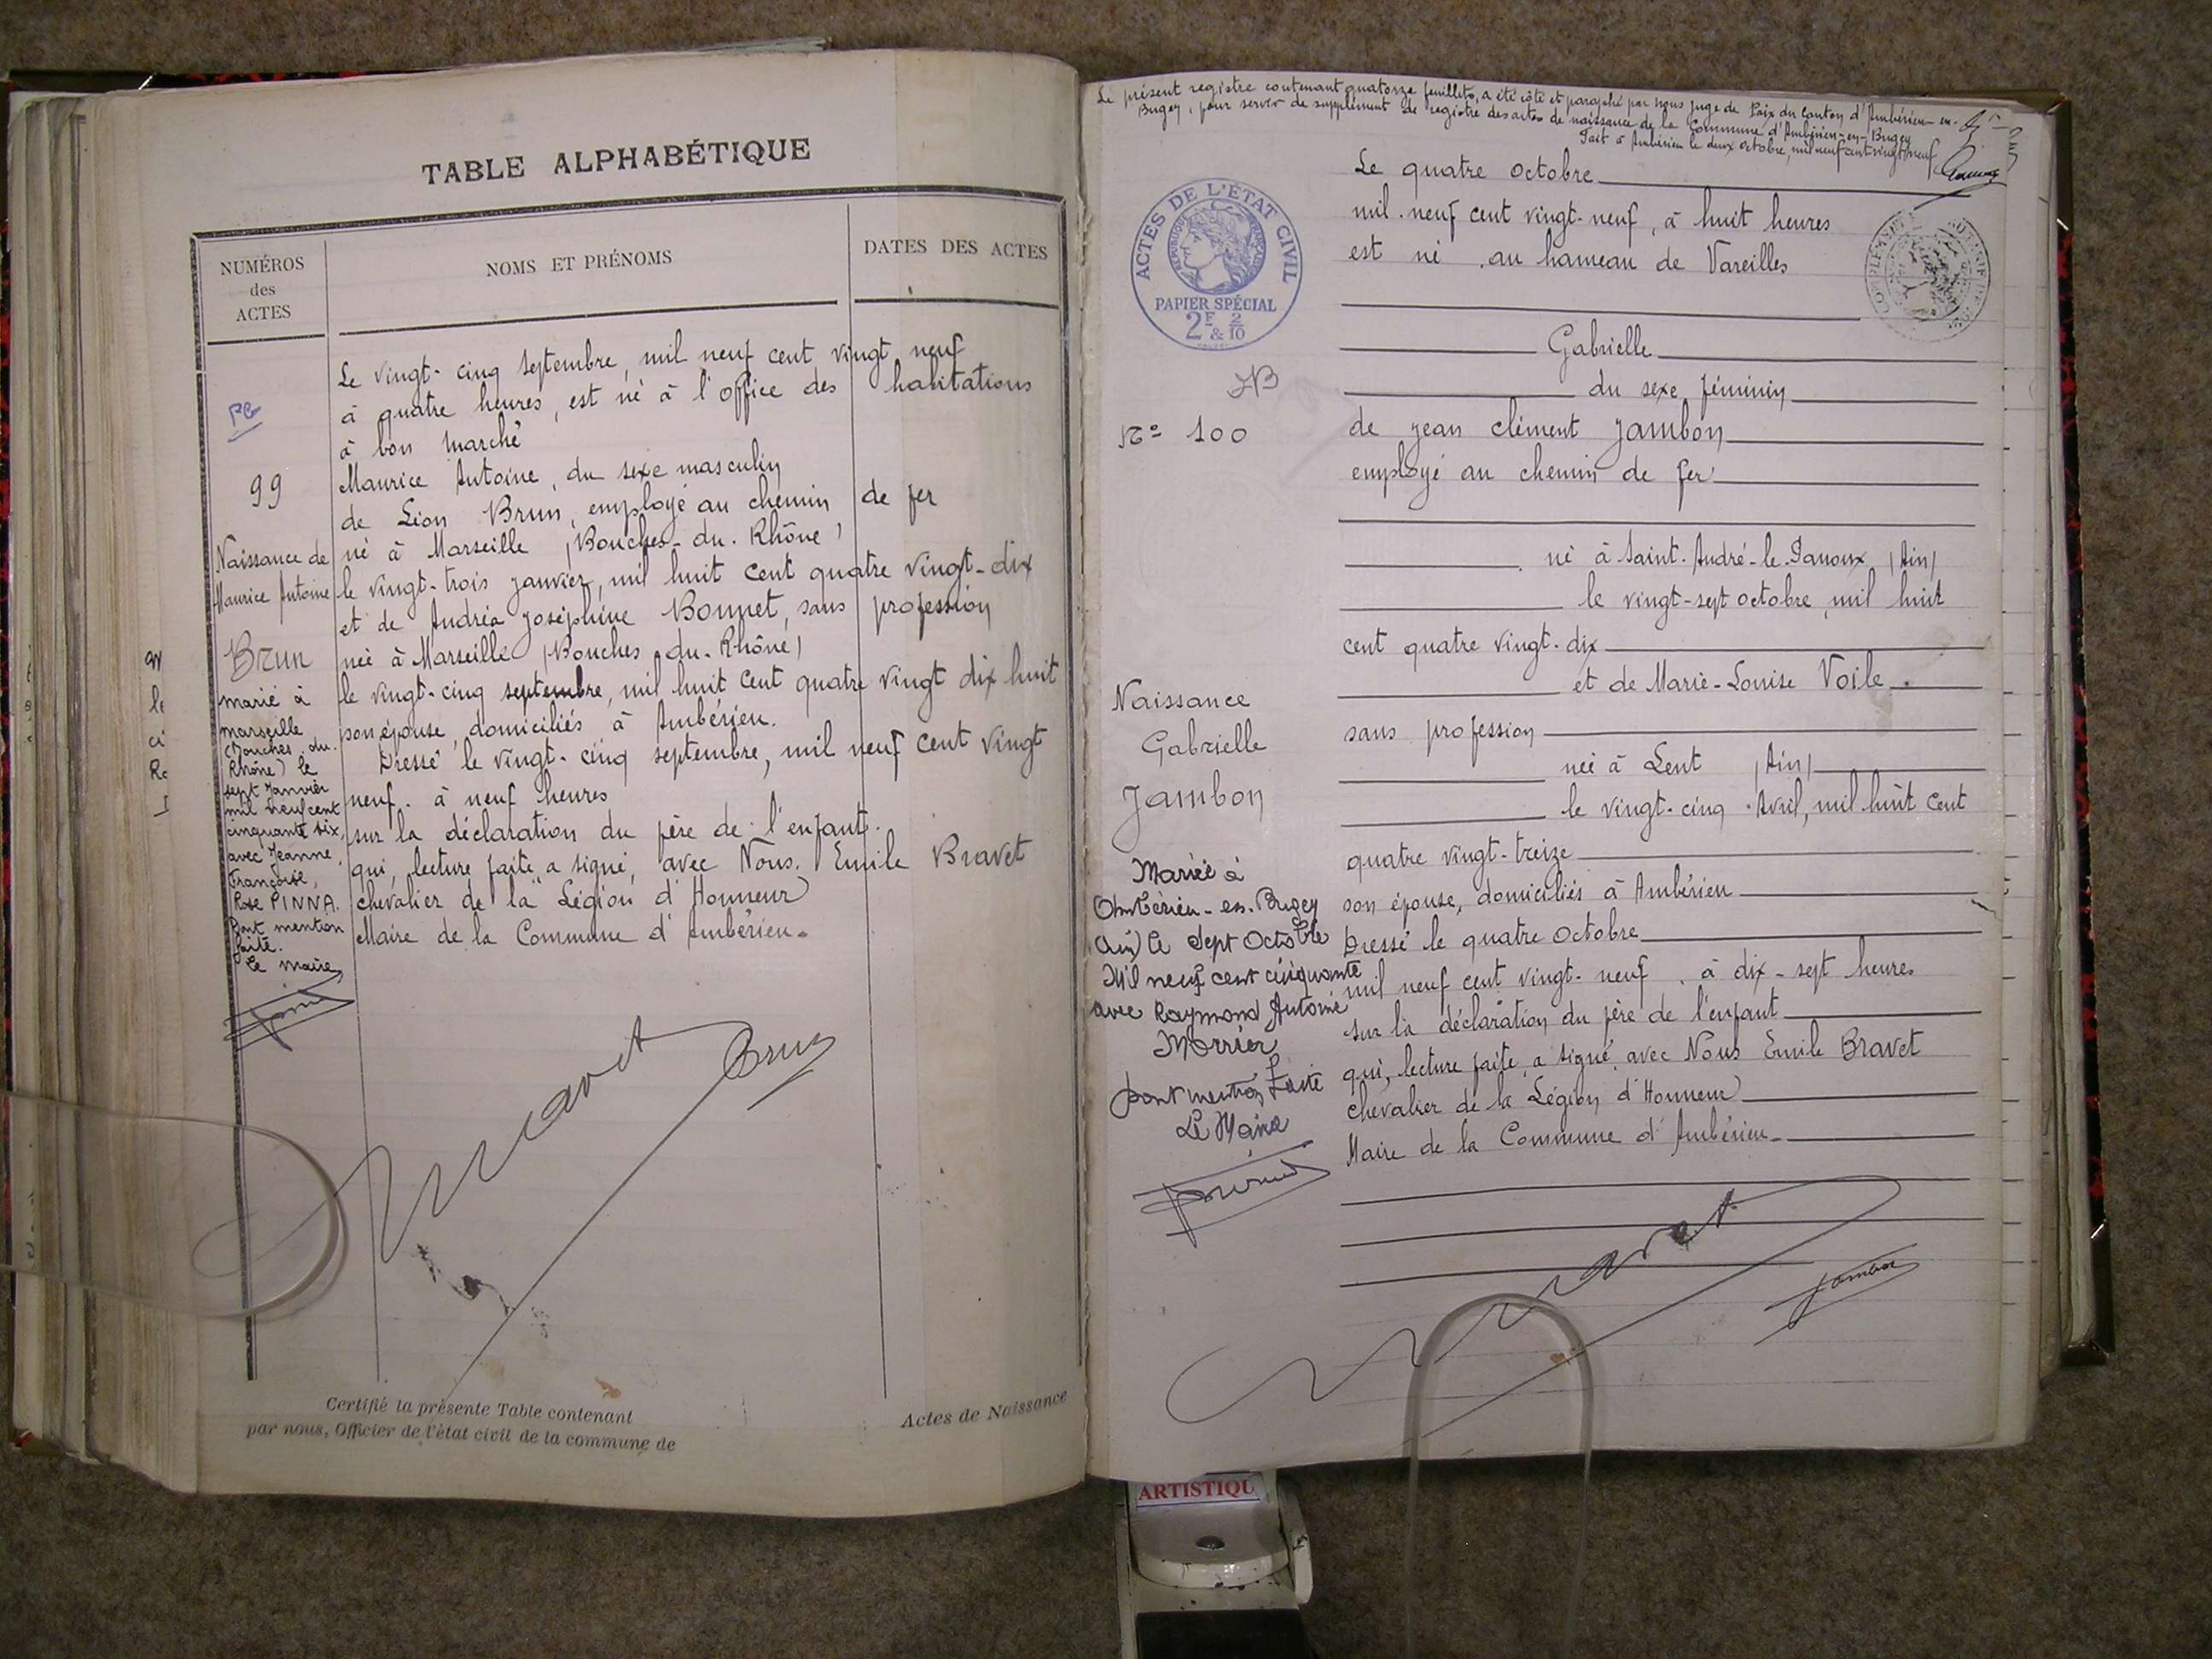 TABLE ALPHABÉTIQUE
NUMÉROS
des
ACTES
NOMS ET PRÉNOMS
DATES DES ACTES
Le vingt-cinq septembre, mil neuf cent vingt neuf
à quatre heures, est né à l'office des habitations
à bon marché
Maurice Antoine, du sexe masculin
de Léon Brun, employé au chemin de fer
né à Marseille (Bouches-du-Rhône)
le vingt-trois janvier, mil huit cent quatre vingt-dix
et de Andréa Joséphine Bonnet, sans profession
née à Marseille (Bouches-du-Rhône)
le vingt-cinq septembre, mil huit cent quatre vingt dix huit
son épouse, domiciliés à Ambérieu.
Dressé le vingt-cinq septembre, mil neuf cent vingt
neuf. à neuf heures
sur la déclaration du père de l'enfant.
qui, lecture faite, a signé, avec Nous. Emile Bravet
chevalier de la Légion d'Honneur
Maire de la Commune d'Ambérieu.
99
Naissance de
Maurice Antoine
Brun
marié à
marseille
(Bouches du
Rhône) le
sept Janvier
mil neuf cent
cinquante six,
avec Jeanne,
Françoise,
Rose PINNA.
Dont mention
faite.
Le maire,
Bravet
Brun
Certifié la présente Table contenant
Actes de Naissance
par nous, Officier de l'état civil de la commune de
Le présent registre contenant quatorze feuillets, a été côté et paraphé par nous Juge de Paix du Canton d'Ambérieu-en-
Bugey, pour servir de supplément de registre des actes de naissance de la Commune d'Ambérieu-en-Bugey
Fait à Ambérieu le deux octobre, mil neuf cent vingt neuf
ACTES DE L'ÉTAT CIVIL
RÉPUBLIQUE FRANÇAISE
PAPIER SPÉCIAL
2F & 2/10
Le quatre octobre
mil neuf cent vingt-neuf, à huit heures
est né au hameau de Vareilles
Gabrielle
du sexe féminin
de Jean Clément Jambon
employé au chemin de fer
né à Saint-André-le-Panoux (Ain)
le vingt-sept octobre, mil huit
cent quatre vingt-dix
et de Marie-Louise Voile
sans profession
née à Lent (Ain)
le vingt-cinq Avril, mil huit cent
quatre vingt-treize
son épouse, domiciliés à Ambérieu
Dressé le quatre octobre
mil neuf cent vingt-neuf, à dix-sept heures
sur la déclaration du père de l'enfant
qui, lecture faite, a signé, avec Nous Emile Bravet
chevalier de la Légion d'Honneur
Maire de la Commune d'Ambérieu
N° 100
Naissance
Gabrielle
Jambon
Mariée à
Ambérieu-en-Bugey
(Ain) le sept Octobre
Mil neuf cent cinquante
avec Raymond Antoine
Morrier
Dont mention faite
Le Maire
Bravet
Jambon
ARTISTIQU